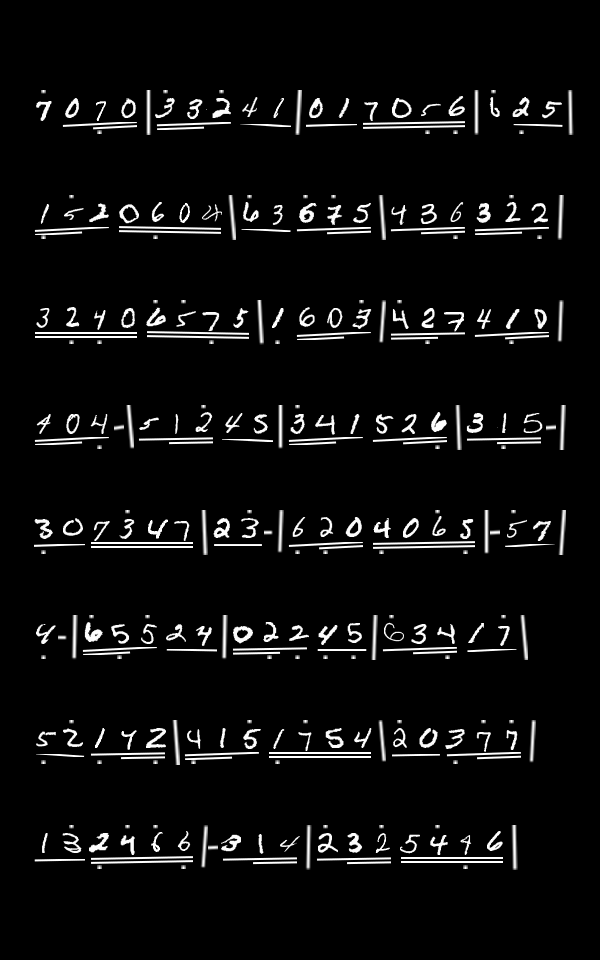 7070|33241|017056|625
1520604|63675|436322
32406575|1603|427410
404-|51245|341526|315-
303347|23-|6204065|-57
4-|65524|02245|63417
52142|4151754|20377
132466|-314|2325446